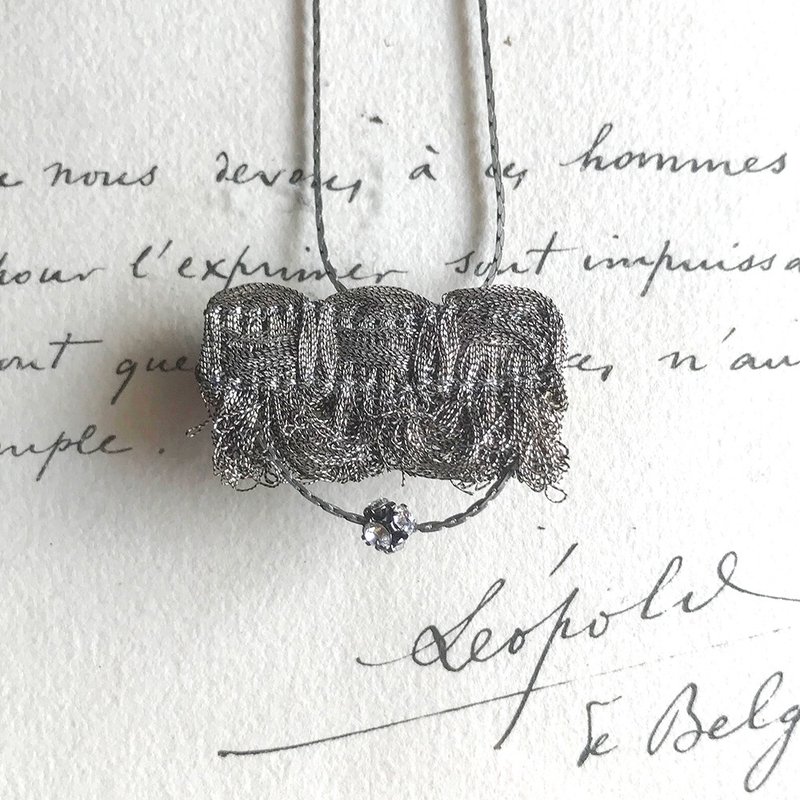 nous devons à ces hommes
pour l'exprimer sont impuissa
ont que ces n'au
mple.
Léopold
de Belg